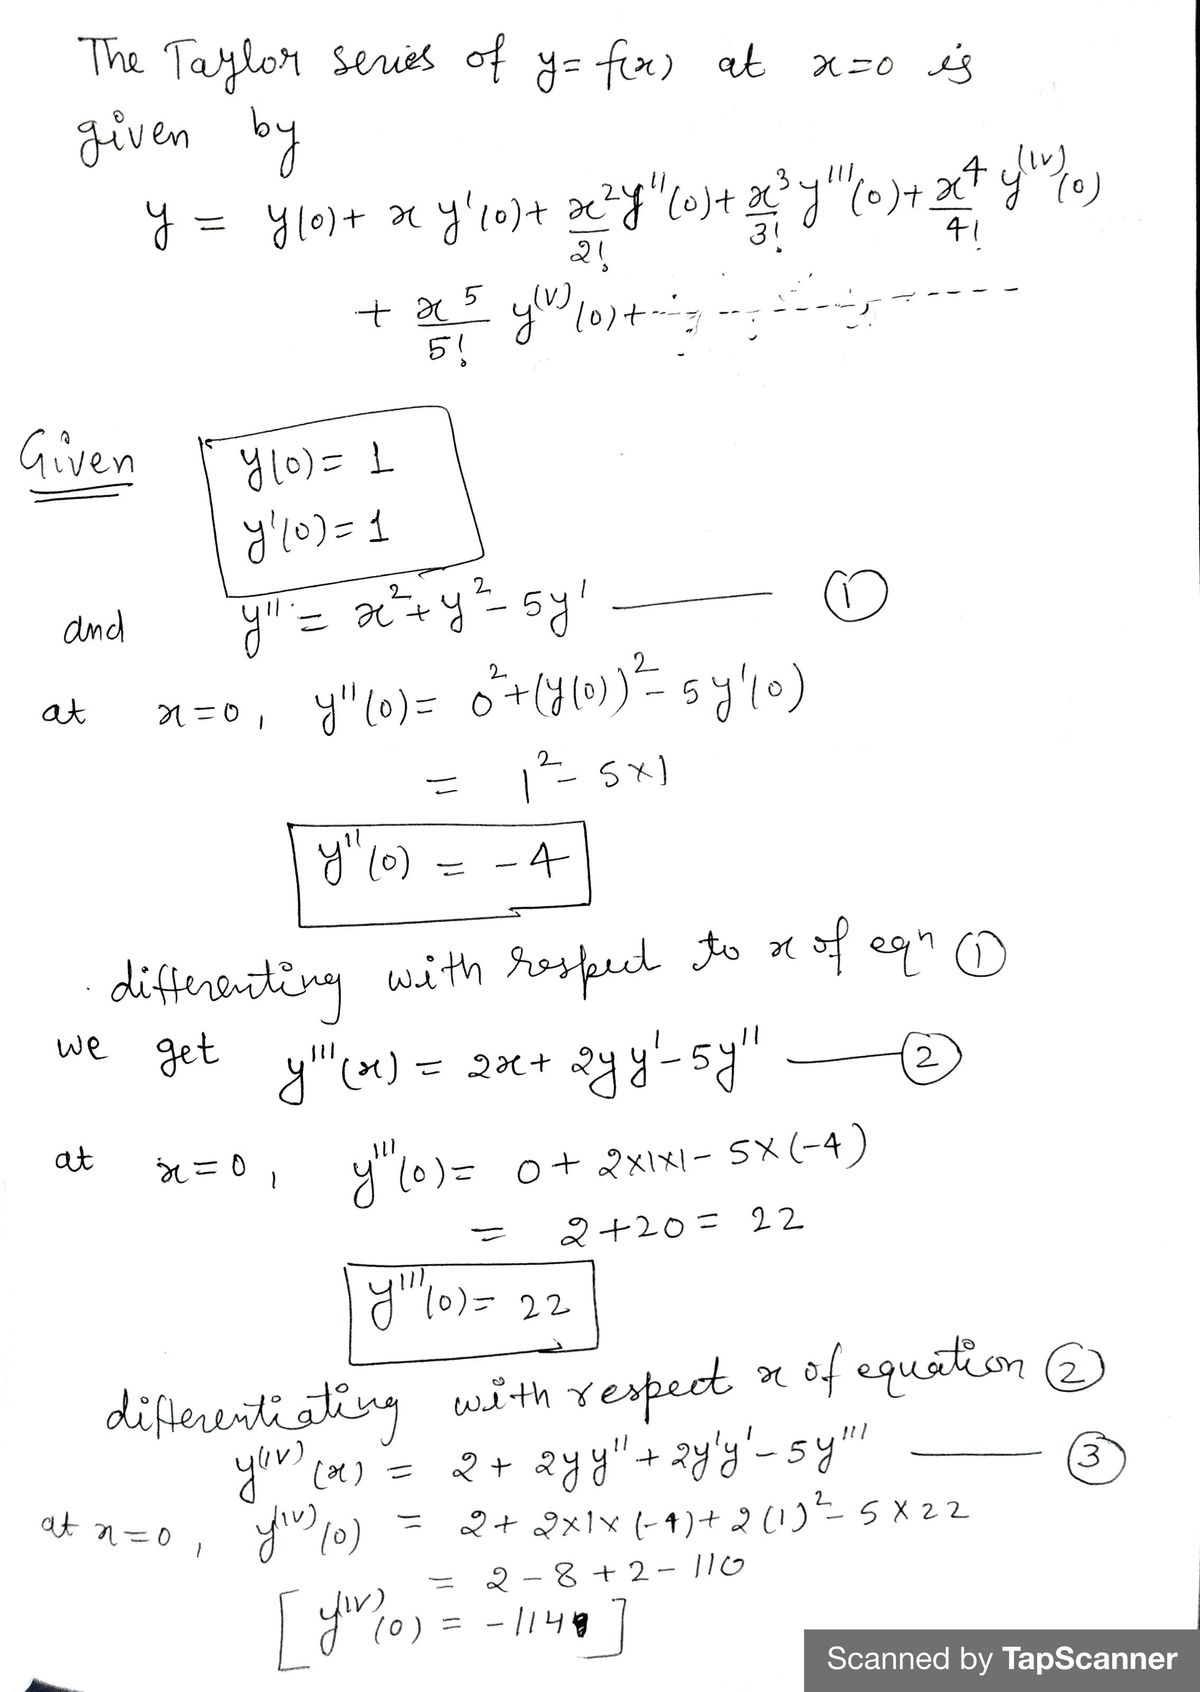 The Taylor series of y = f(x) at x=0 is
given by
y = y(0) + x y'(0) + x²/2! y''(0) + x³/3! y'''(0) + x⁴/4! y⁽ᴵⱽ⁾(0)
+ x⁵/5! y⁽ⱽ⁾(0) + ----------
Given y(0) = 1
y'(0) = 1
and y'' = x² + y² - 5y' ——— ①
at x=0, y''(0) = 0² + (y(0))² - 5y'(0)
= 1² - 5×1
y''(0) = -4
differenting with respect to x of eqⁿ ①
we get y'''(x) = 2x + 2y y' - 5y'' ——— ②
at x=0, y'''(0) = 0 + 2×1×1 - 5×(-4)
= 2+20 = 22
y'''(0) = 22
differentiating with respect x of equation ②
y⁽ᴵⱽ⁾(x) = 2 + 2y y'' + 2y'y' - 5y''' ——— ③
at x=0, y⁽ᴵⱽ⁾(0) = 2 + 2×1×(-4) + 2(1)² - 5×22
= 2 - 8 + 2 - 110
[y⁽ᴵⱽ⁾(0) = -114]
Scanned by TapScanner